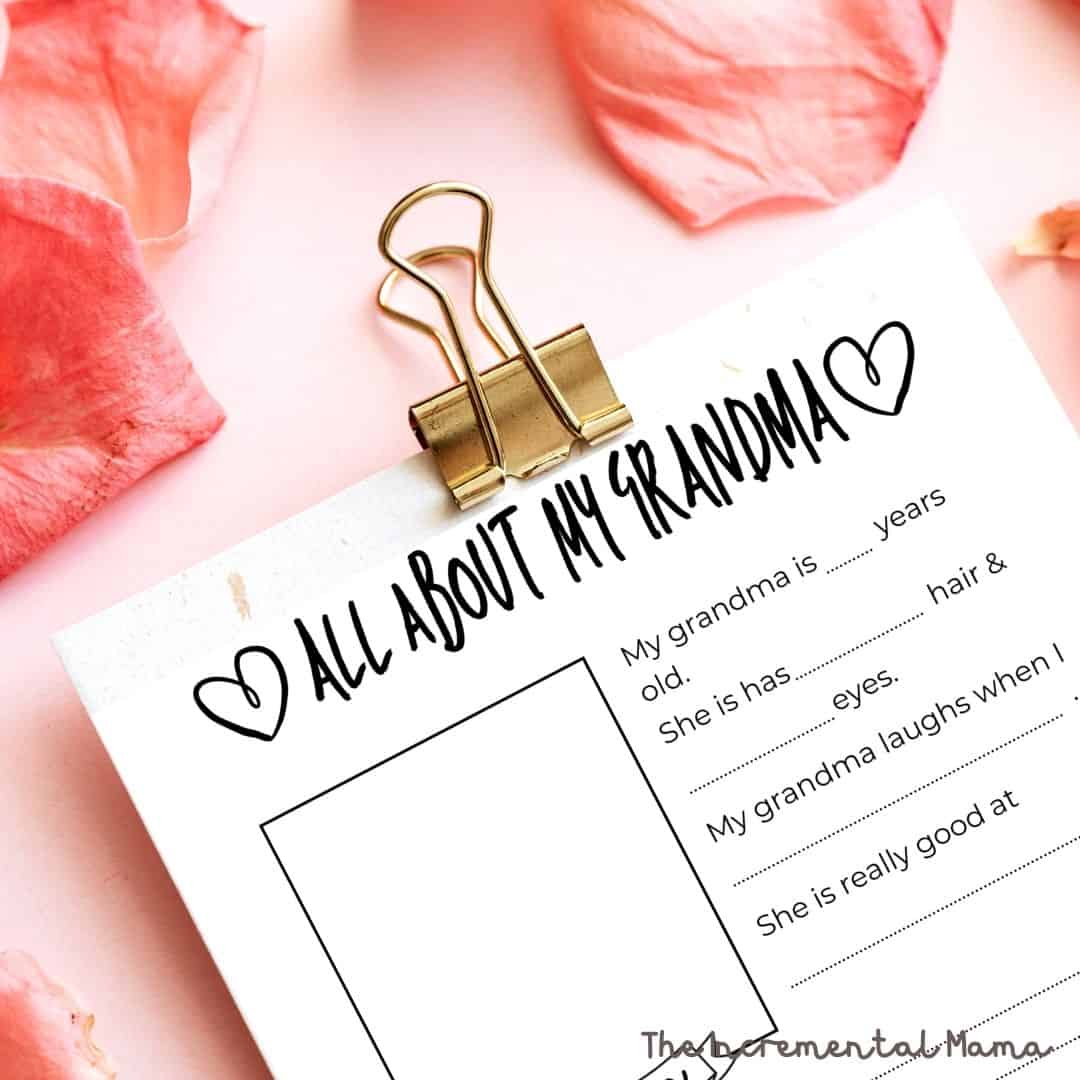 ALL ABOUT MY GRANDMA
My grandma is .......... years
old.
She is has.............................. hair &
..................................eyes.
My grandma laughs when I
.................................................................. .
She is really good at
The Incremental Mama